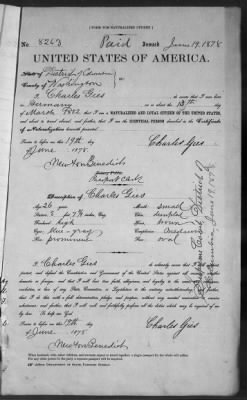 [FORM FOR NATURALIZED CITIZEN.]
No. 8263 Paid Issued June 19, 1878
UNITED STATES OF AMERICA.
State of District of Columbia
County of Washington
I, Charles Gies
Germany on or about the 13th day
of March 1852 am a NATURALIZED AND LOYAL CITIZEN OF THE UNITED STATES,
and that I am the IDENTICAL PERSON described in the Certificate
of Naturalization herewith presented.
Sworn to before me this 19th day Charles Gies
of June 1878.
Newton Benedict
Notary Public
Description of Charles Gies
Age 26 years Mouth small
Stature 5 feet inches, Eng. Chin dimpled
Forehead high Hair brown
Eyes blue-gray Complexion
Nose prominent Face oval
I, Charles Gies do solemnly swear that I will support,
protect, and defend the Constitution and Government of the United States against all enemies, whether
domestic or foreign; and that I will bear true faith, allegiance, and loyalty to the same, any ordinance,
resolution, or law of any State, Convention, or Legislature to the contrary notwithstanding; and further,
that I do this with a full determination, pledge, and purpose, without any mental reservation or evasion
whatsoever; and further, that I will well and faithfully perform all the duties which may be required of me
by law. So help me God.
Sworn to before me this 19th day Charles Gies
of June 1878
Newton Benedict